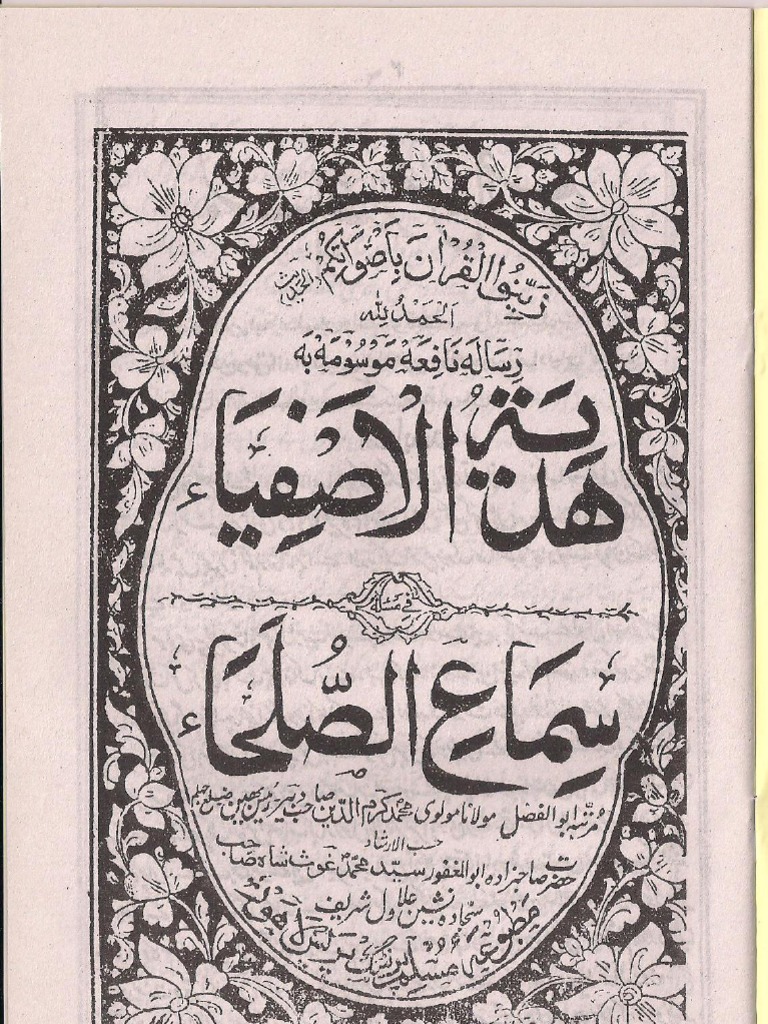 زَيِّنُوا الْقُرْآنَ بِأَصْوَاتِكُمْ الحديث
الحَمْدُ لِلّٰه
رِسَالَه نَافِعَهْ مَوْسُوْمَهْ بَه
هَدْيَةُ الْاَصْفِيَاء
فی مسئلة
سِمَاعِ الصُّلَحَاء
مرتبہ ابو الفضل مولانا مولوی محمد کرم الدین صاحب دبیر رئیس بھین ضلع جہلم
حسب الارشاد
حضرت صاحبزادہ ابو الغفور سید محمد غوث شاہ صاحب
سجادہ نشین علاول شریف
مطبوعہ مسلم پرنٹنگ پریس لاہور